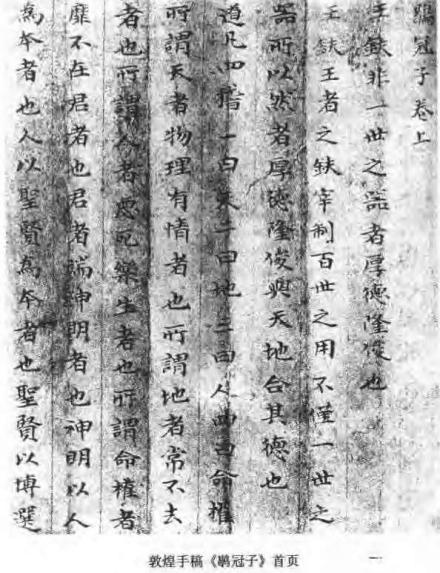 鶡冠子卷上
王鈇非一世之器者厚德隆俊也
王鈇王者之鈇宰制百世之用不僅一世之
器所以然者厚德隆俊與天地合其德也
道凡四稽一曰天二曰地三曰人四曰命權
所謂天者物理有情者也所謂地者常不去
者也所謂人者惡死樂生者也所謂命權者
靡不在君者也君者端神明者也神明以人
為本者也人以聖賢為本者也聖賢以博選
敦煌手稿《鶡冠子》首页
一